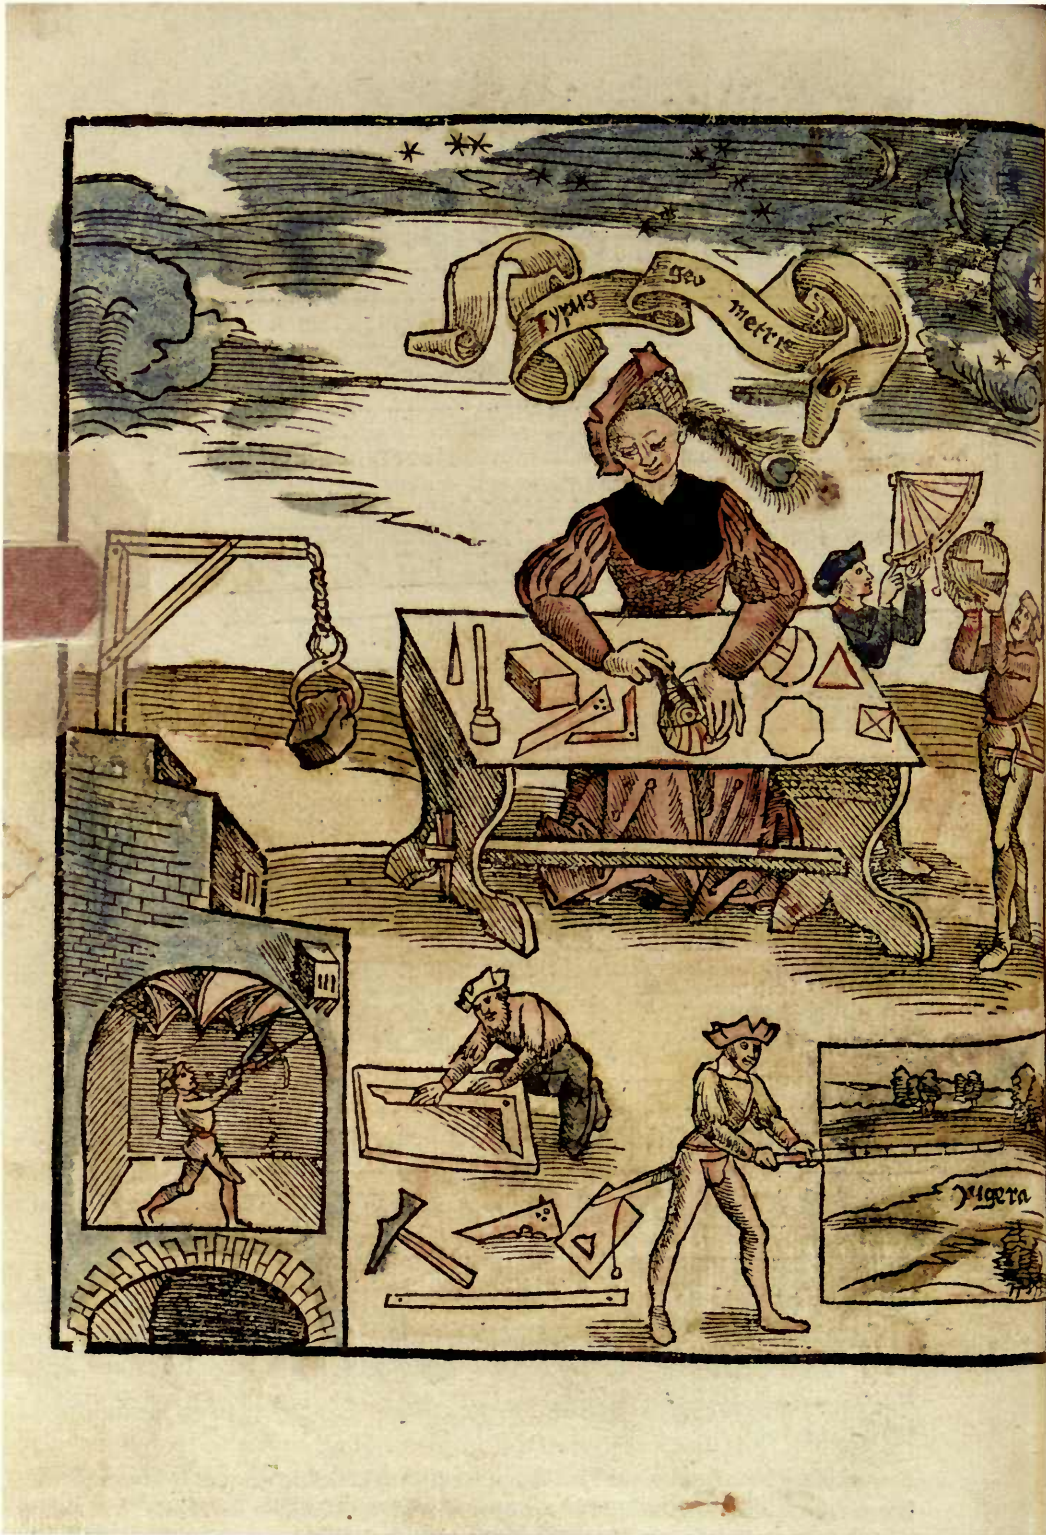 Typus
geo
metrie
Yugera